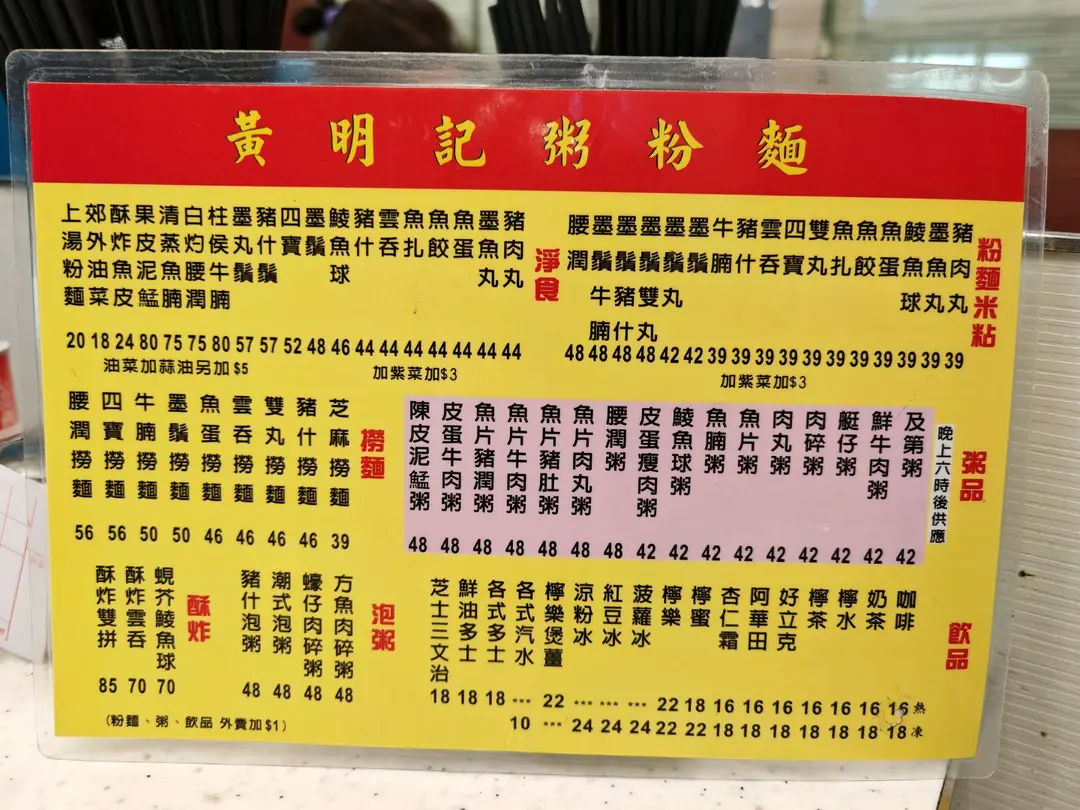 黃明記粥粉麵
粉麵米粘
豬肉丸 39
墨魚丸 39
鯪魚球 39
魚蛋 39
魚餃 39
魚扎 39
雙丸 39
四寶 39
雲吞 39
豬什 39
牛腩 39
墨鬚 42
墨鬚丸 42
墨鬚雙丸 48
墨鬚豬什 48
墨鬚牛腩 48
腰潤 48
加紫菜加$3
淨食
豬肉丸 44
墨魚丸 44
魚蛋 44
魚餃 44
魚扎 44
雲吞 44
豬什 44
鯪魚球 46
墨鬚 48
四寶 52
豬什鬚 57
墨丸鬚 57
柱侯牛腩 80
白灼腰潤 75
清蒸魚腩 75
果皮泥鯭 80
酥炸魚皮 24
郊外油菜 18
上湯粉麵 20
加紫菜加$3
油菜加蒜油另加$5
粥品
晚上六時後供應
及第粥 42
鮮牛肉粥 42
艇仔粥 42
肉碎粥 42
肉丸粥 42
魚片粥 42
魚腩粥 42
鯪魚球粥 42
皮蛋瘦肉粥 42
腰潤粥 48
魚片肉丸粥 48
魚片豬肚粥 48
魚片牛肉粥 48
魚片豬潤粥 48
皮蛋牛肉粥 48
陳皮泥鯭粥 48
撈麵
芝麻撈麵 39
豬什撈麵 46
雙丸撈麵 46
雲吞撈麵 46
魚蛋撈麵 46
墨鬚撈麵 50
牛腩撈麵 50
四寶撈麵 56
腰潤撈麵 56
飲品
熱 凍
咖啡 16 18
奶茶 16 18
檸水 16 18
檸茶 16 18
好立克 16 18
阿華田 16 18
杏仁霜 16 18
檸蜜 18 22
檸樂 22 22
菠蘿冰 *** 24
紅豆冰 *** 24
涼粉冰 *** 24
檸樂煲薑 22 ***
各式汽水 *** 10
各式多士 18
鮮油多士 18
芝士三文治 18
泡粥
方魚肉碎粥 48
蠔仔肉碎粥 48
潮式泡粥 48
豬什泡粥 48
酥炸
蜆芥鯪魚球 70
酥炸雲吞 70
酥炸雙拼 85
(粉麵、粥、飲品 外賣加$1)